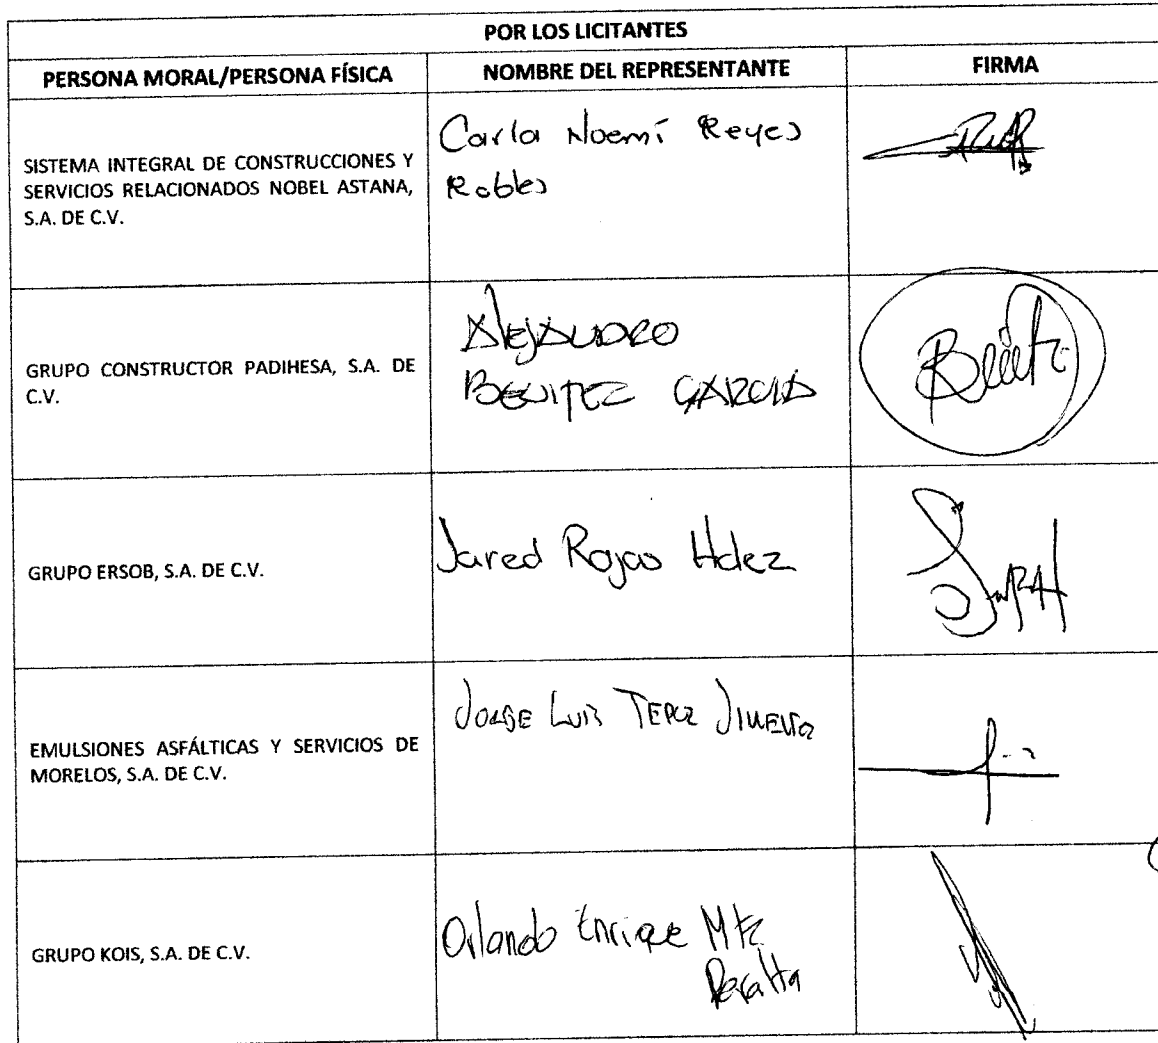 POR LOS LICITANTES
PERSONA MORAL/PERSONA FÍSICA NOMBRE DEL REPRESENTANTE FIRMA
SISTEMA INTEGRAL DE CONSTRUCCIONES Y
SERVICIOS RELACIONADOS NOBEL ASTANA,
S.A. DE C.V.
Carla Noemí Reyes
Robles
GRUPO CONSTRUCTOR PADIHESA, S.A. DE
C.V.
Alejandro
BENITEZ GARCIA
GRUPO ERSOB, S.A. DE C.V.
Jared Rojas Hdez
EMULSIONES ASFÁLTICAS Y SERVICIOS DE
MORELOS, S.A. DE C.V.
JORGE LUIS
GRUPO KOIS, S.A. DE C.V.
Orlando Enrique Mtz
Peralta